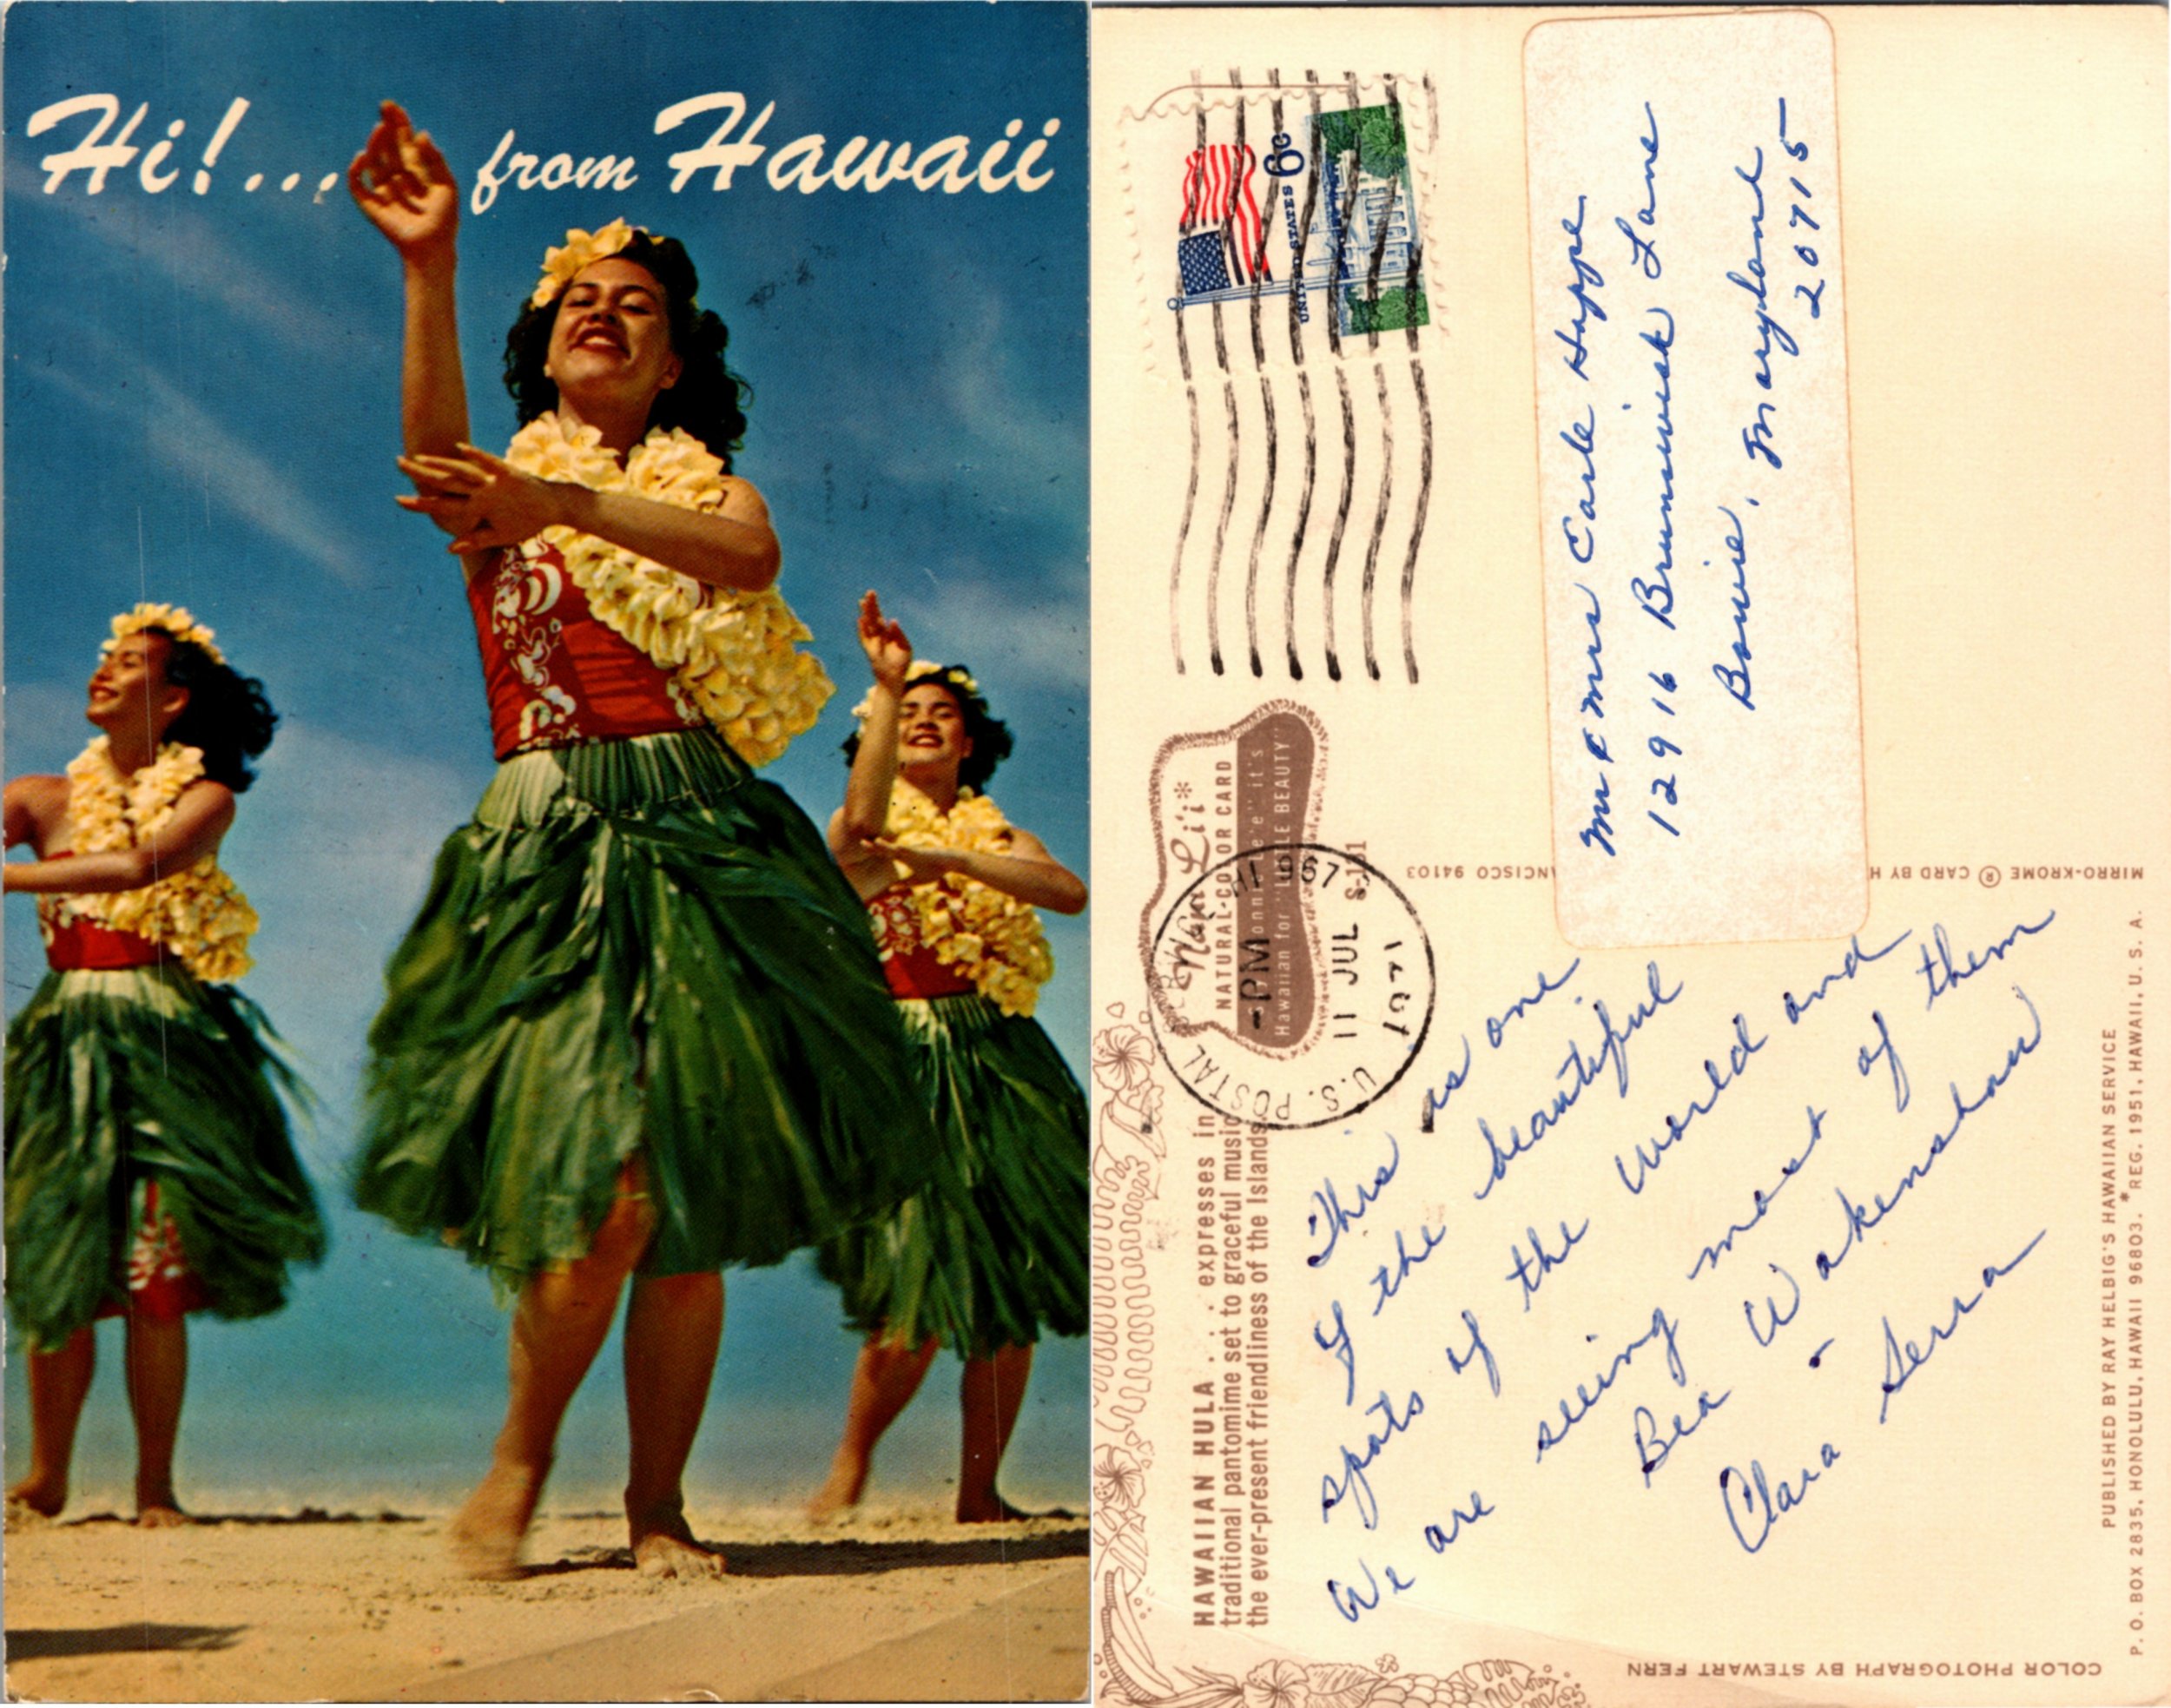 Hi!... from Hawaii
UNITED STATES 6c
U.S. POSTAL
HI 967
PM
11 JUL
1971
Nani Li'i*
NATURAL-COLOR CARD
it's
Hawaiian for "LITTLE BEAUTY"
S-131
HAWAIIAN HULA . . . expresses in
traditional pantomime set to graceful music
the ever-present friendliness of the Islands
This is one
of the beautiful
spots of the world and
We are seeing most of them
Bea Wakenshaw
-
Clara Serra
Mr & Mrs Earle Hoppe
12916 Brunswick Lane
Bowie, Maryland
20715
MIRRO-KROME ® CARD BY H
NCISCO 94103
PUBLISHED BY RAY HELBIG'S HAWAIIAN SERVICE
P. O. BOX 2835, HONOLULU, HAWAII 96803. *REG. 1951, HAWAII, U. S. A.
COLOR PHOTOGRAPH BY STEWART FERN